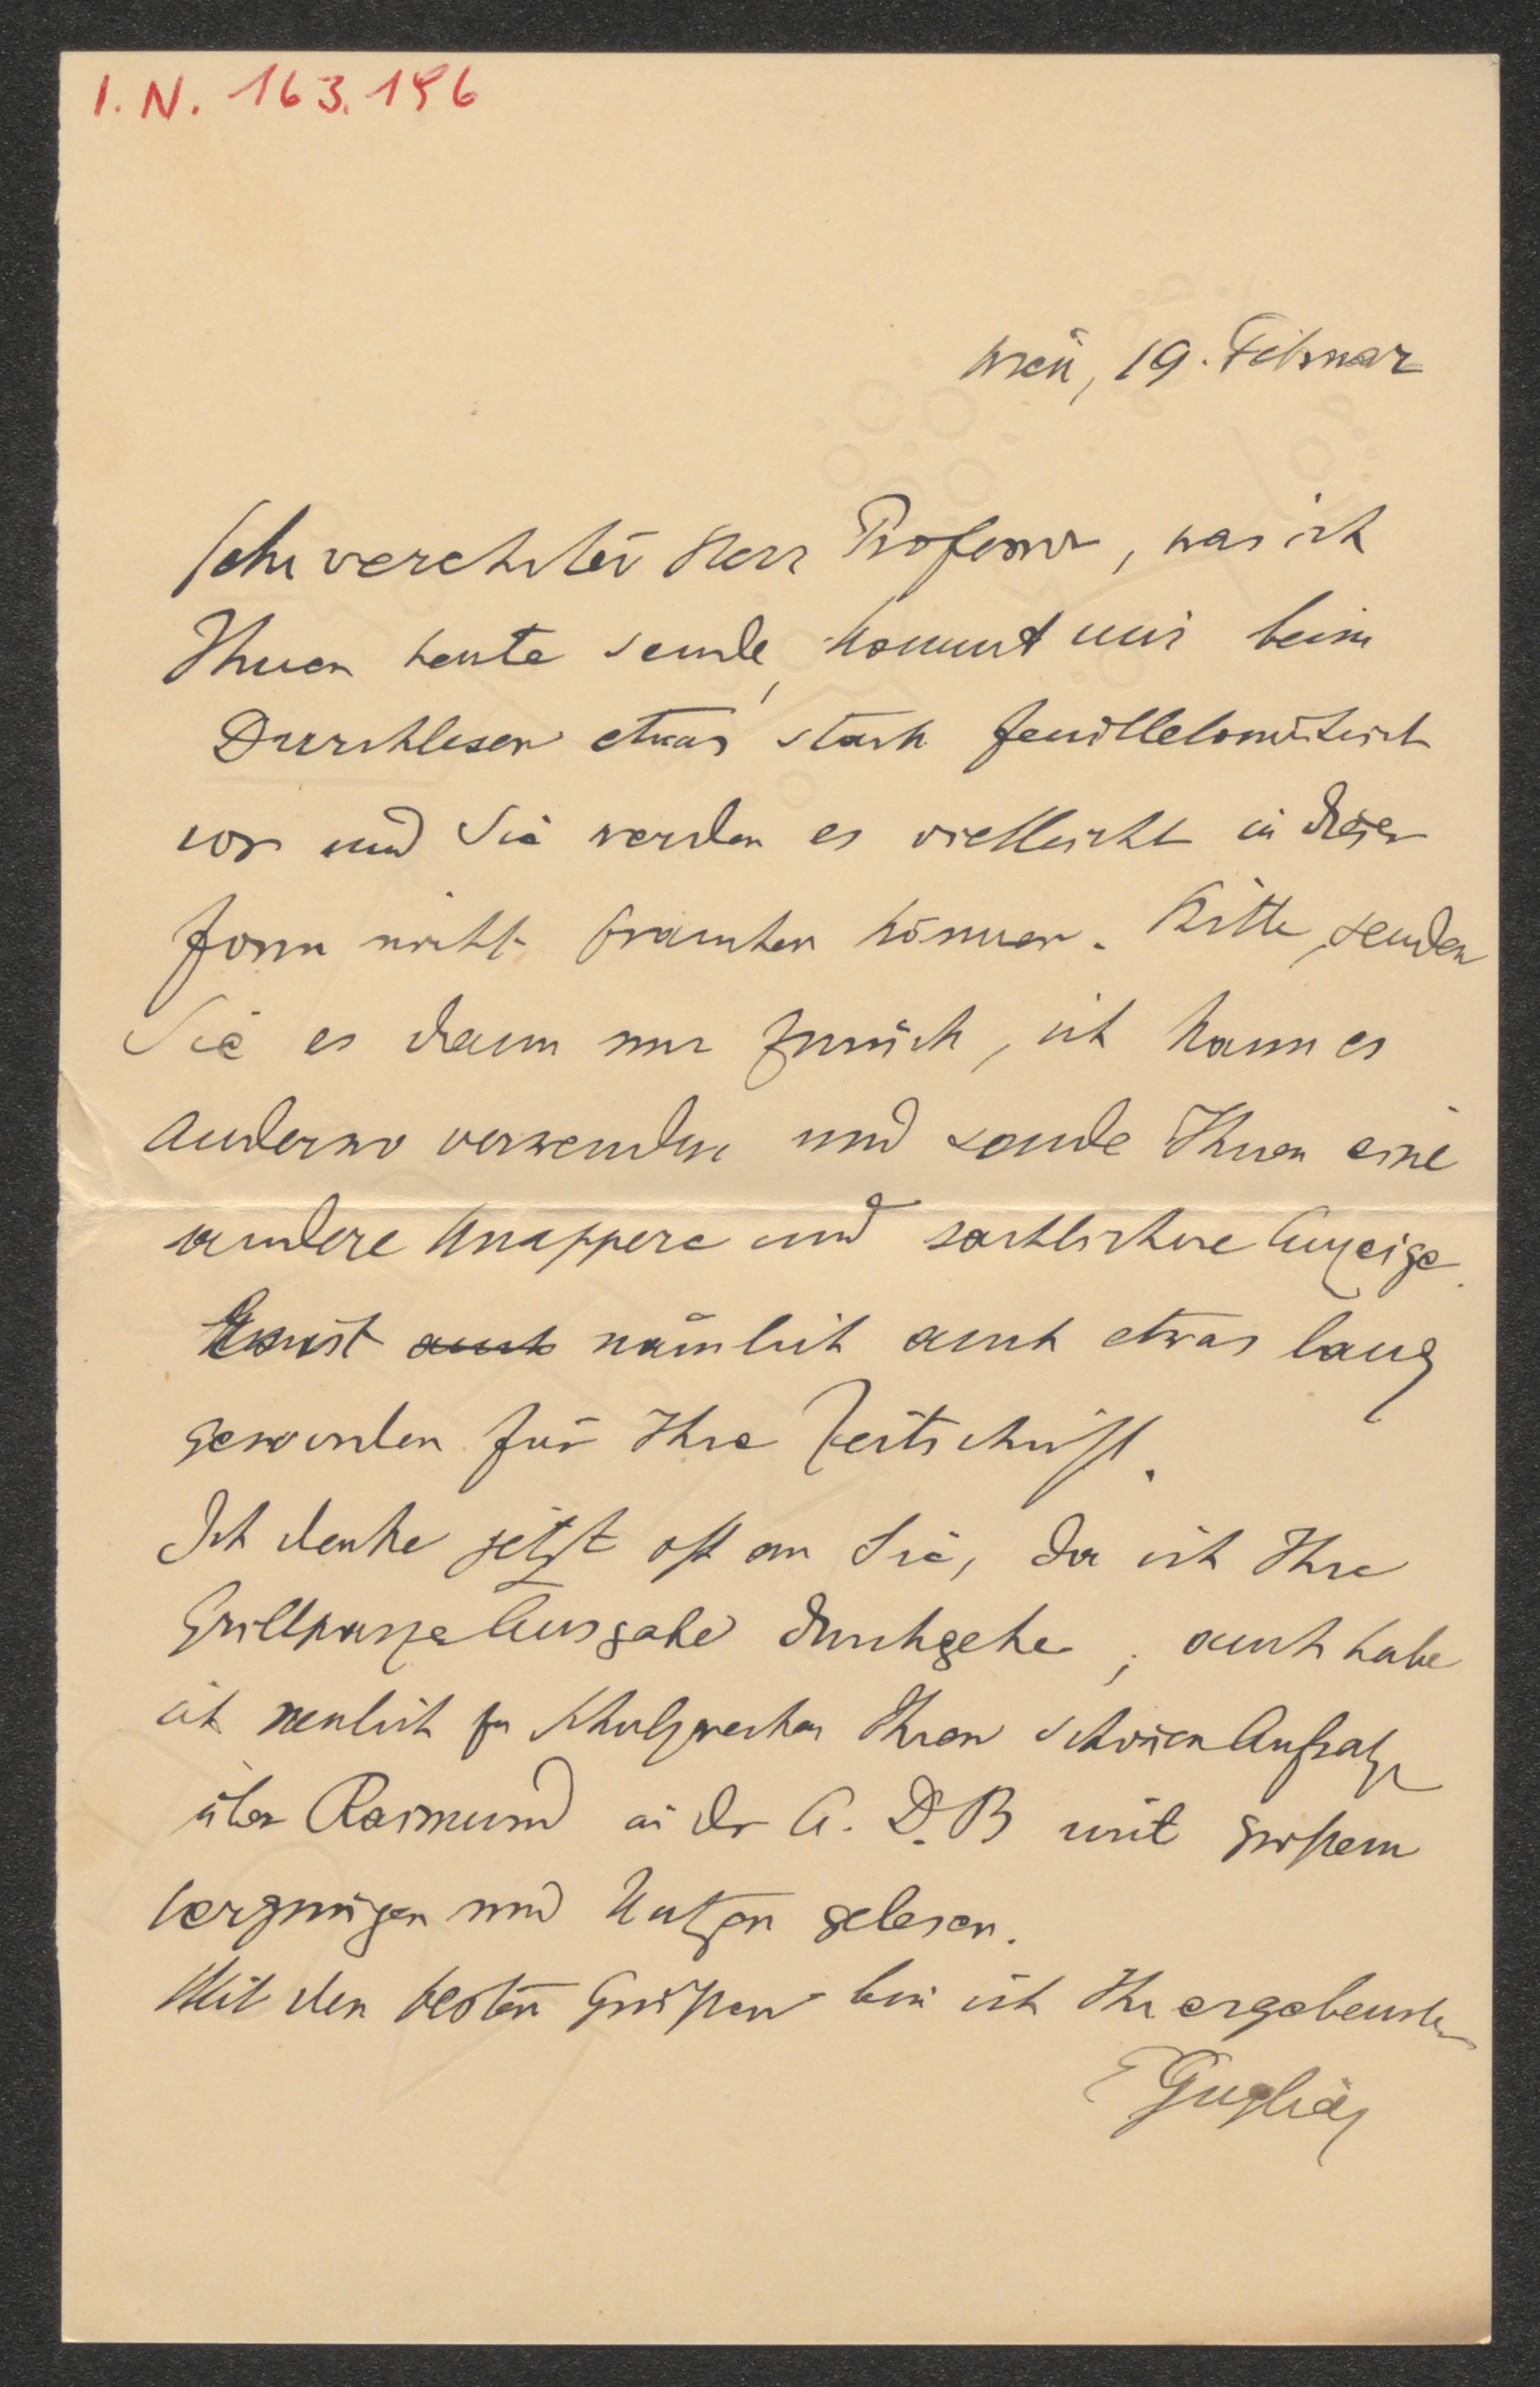 I. N. 163.196
Wien, 19. Februar
Sehr verehrter Herr Professor, was ich
Ihnen heute sende, kommt mir beim
Durchlesen etwas stark feuilletonistisch
vor und Sie werden es vielleicht in dieser
Form nicht brauchen können. Bitte, senden
Sie es dann nur zurück, ich kann es
anderswo verwenden und sende Ihnen eine
andere knappere und sachlichere Anzeige.
Es ist auch nämlich auch etwas lang
geworden für Ihre Zeitschrift.
Ich denke jetzt oft an Sie, da ich Ihre
Grillparzer Ausgabe durchgehe; auch habe
ich neulich zu Schulzwecken Ihren schönen Aufsatz
über Raimund in der A. D. B mit großem
Vergnügen und Nutzen gelesen.
Mit den besten Grüßen bin ich Ihr ergebenster
E Guglia